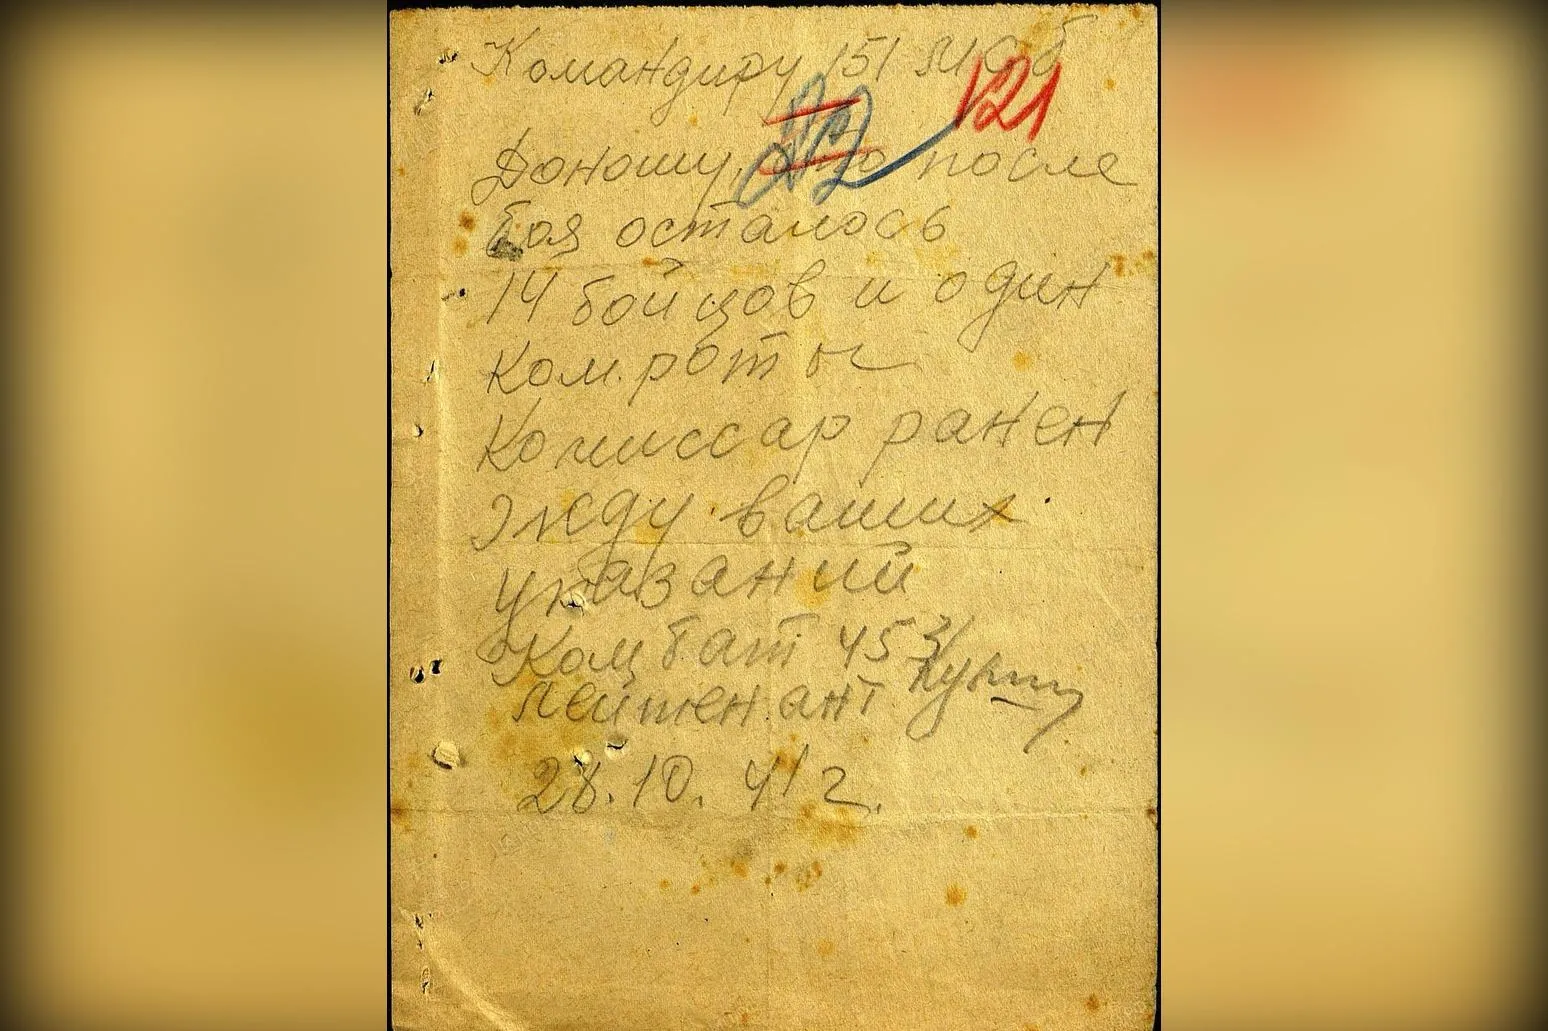 Командиру 151 МСб
121
Доношу, что после
боя осталось
14 бойцов и один
Ком. роты
Комиссар ранен
Жду ваших
указаний
Комбат 453
лейтенант
28.10.41 г.